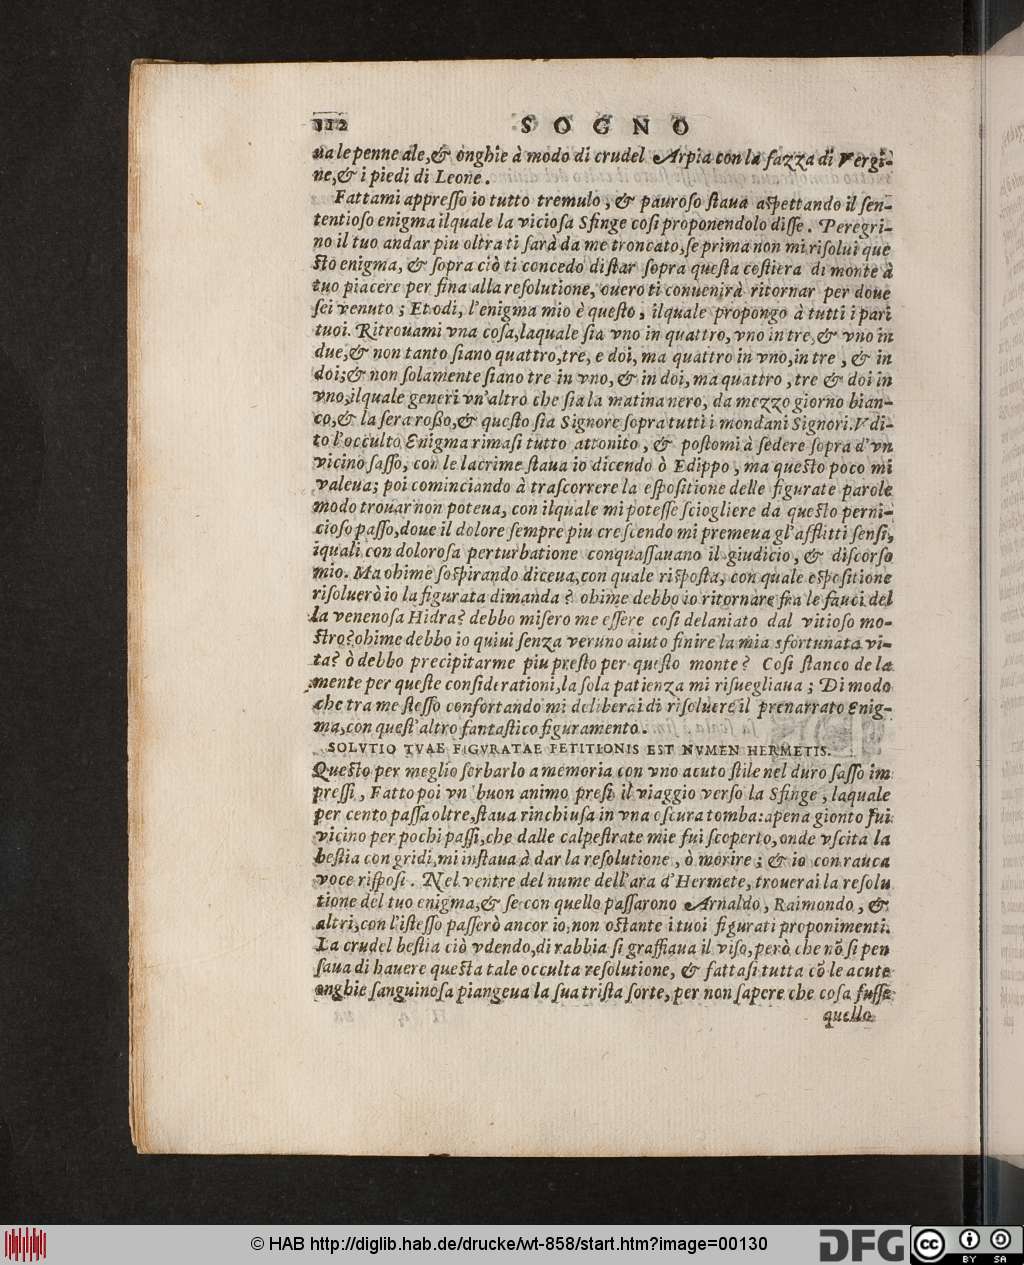 112 SOGNO
ua le penne ale, & onghie à modo di crudel Arpia con la fazza di Vergi-
ne, & i piedi di Leone.
Fattami appresso io tutto tremulo, & pauroso staua aspettando il sen-
tentioso enigma ilquale la viciosa Sfinge cosi proponendolo disse. Peregri-
no il tuo andar piu oltra ti sarà da me troncato, se prima non mi risolui que
sto enigma, & sopra ciò ti concedo di star sopra questa costiera di monte à
tuo piacere per fina alla resolutione, ouero ti conuenirà ritornar per doue
sei venuto; Et odi, l'enigma mio è questo, ilquale propongo à tutti i pari
tuoi. Ritrouami vna cosa, laquale sia vno in quattro, vno in tre, & vno in
due, & non tanto siano quattro, tre, e doi, ma quattro in vno, in tre, & in
doi; & non solamente siano tre in vno, & in doi, ma quattro, tre & doi in
vno, ilquale generi vn'altro che sia la matina nero, da mezzo giorno bian-
co, & la sera roßo, & questo sia Signore sopra tutti i mondani Signori. Vdi-
to l'occulto Enigma rimasi tutto attonito, & postomi à sedere sopra d'vn
vicino sasso, con le lacrime staua io dicendo ò Edippo, ma questo poco mi
valeua; poi cominciando à trascorrere la espositione delle figurate parole
modo trouar non poteua, con ilquale mi potesse sciogliere da questo perni-
cioso passo, doue il dolore sempre piu crescendo mi premeua gl'afflitti sensi,
iquali con dolorosa perturbatione conquassauano il giudicio, & discorso
mio. Ma ohime sospirando diceua, con quale risposta, con quale espositione
risoluerò io la figurata dimanda? ohime debbo io ritornare fra le fauci del
la venenosa Hidra? debbo misero me essere cosi delaniato dal vitioso mo-
stro? ohime debbo io quiui senza veruno aiuto finire la mia sfortunata vi-
ta? ò debbo precipitarme piu presto per questo monte? Cosi stanco de la
mente per queste considerationi, la sola patienza mi risuegliaua; Di modo
che tra me stesso confortando mi deliberai di risoluere il prenarrato Enig-
ma, con quest'altro fantastico figuramento.
SOLVTIO TVAE FIGVRATAE PETITIONIS EST NVMEN HERMETIS.
Questo per meglio serbarlo a memoria con vno acuto stile nel duro sasso im
pressi, Fatto poi vn buon animo presi il viaggio verso la Sfinge, laquale
per cento passa oltre, staua rinchiusa in vna oscura tomba: apena gionto fui
vicino per pochi passi, che dalle calpestrate mie fui scoperto, onde vscita la
bestia con gridi, mi instaua à dar la resolutione, ò morire; & io con rauca
voce risposi. Nel ventre del nume dell'ara d'Hermete, trouerai la resolu
tione del tuo enigma, & se con quello passarono Arnaldo, Raimondo, &
altri, con l'istesso passerò ancor io, non ostante i tuoi figurati proponimenti.
La crudel bestia ciò vdendo, di rabbia si graffiaua il viso, però che nō si pen
saua di hauere questa tale occulta resolutione, & fattasi tutta cō le acute
onghie sanguinosa piangeua la sua trista sorte, per non sapere che cosa fusse
quello
© HAB http://diglib.hab.de/drucke/wt-858/start.htm?image=00130
DFG cc BY SA